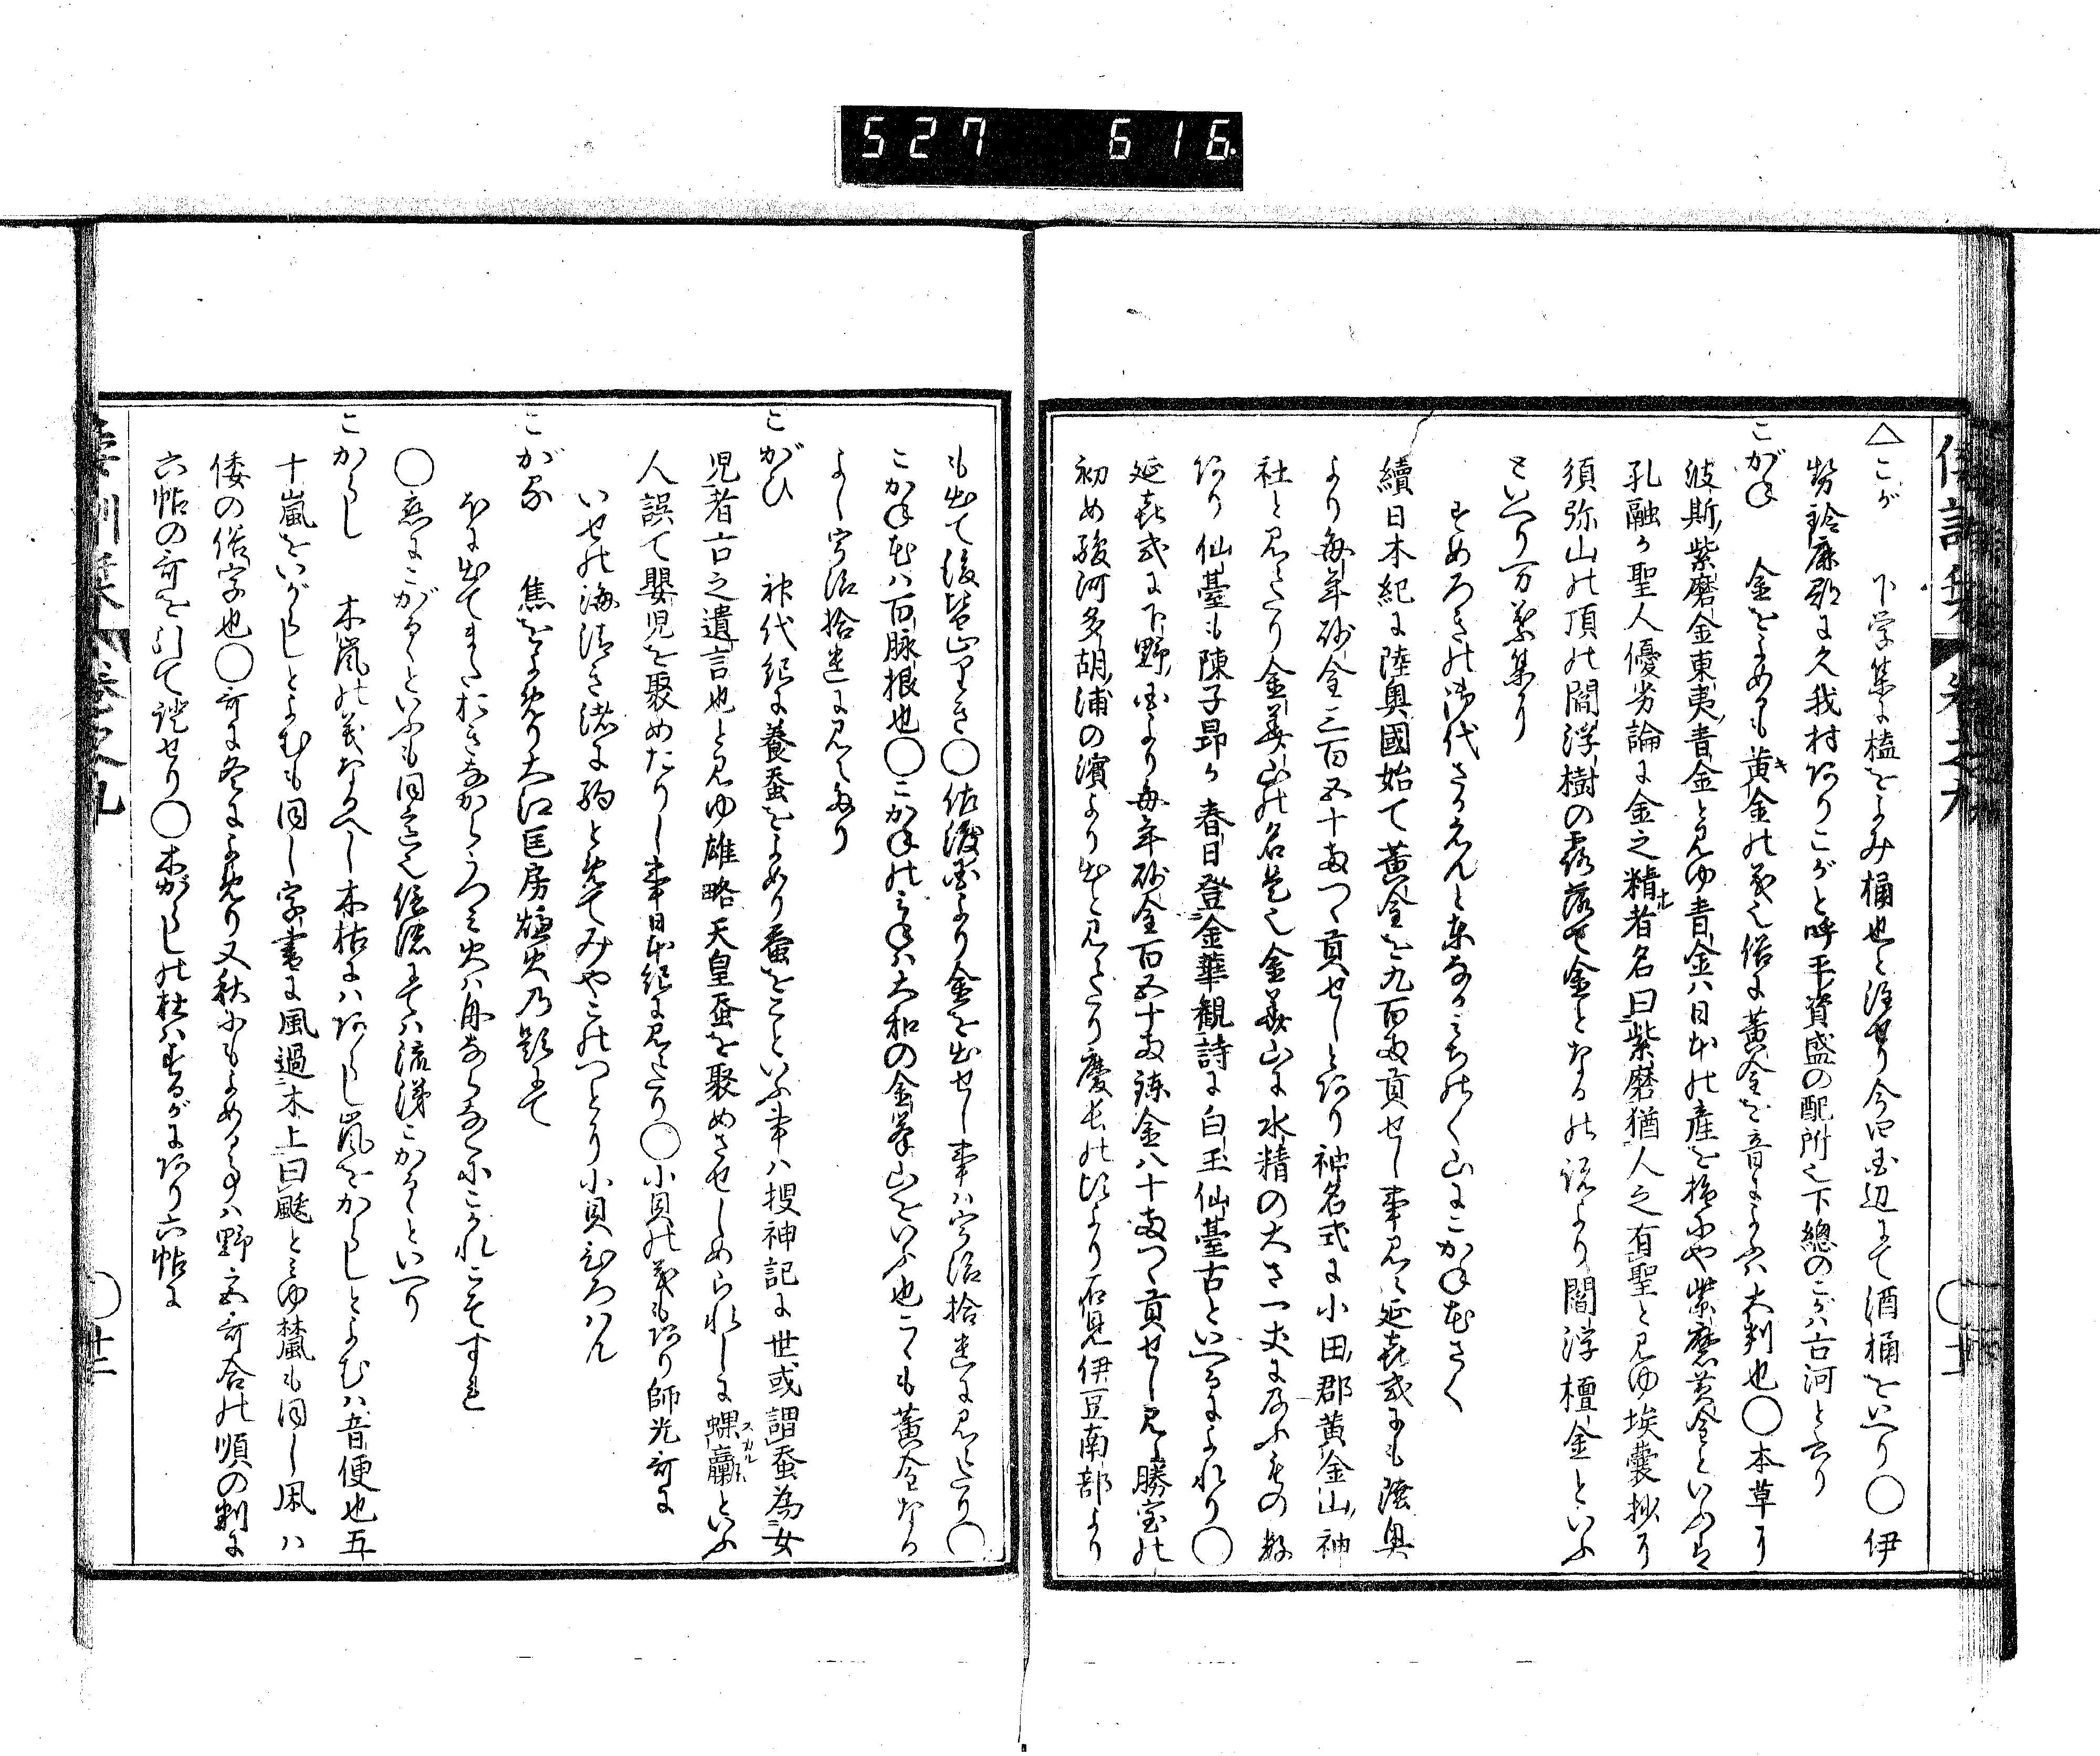 527 616.
倭訓栞 卷之九 〇十一
△こが 下学集に榼をよみ桶也と注せり今四国辺にて酒桶をいへり〇伊
勢鈴鹿郡に久我村ありこがと呼平資盛の配所也下總のこがハ古河と云り
こがね 金をよめるも黄金の義也俗に黄金を音よふハ大判也〇本草に
波斯紫磨金東夷青金と見ゆ青金ハ日本の産を指にや紫磨黄金といふは
孔融か聖人優劣論に金之精者名曰紫磨猶人之有聖と見ゆ埃囊抄に
須弥山の頂の閻浮樹の露落て金となるの説より閻浮檀金といふ
といへり万葉集に
すめろきの御代さかえんと東なるみちのく山にこかね花さく
續日本紀に陸奥國始て黄金を九百両貢せし事見え延喜式にも陸奥
より毎年砂金三百五十両つゝ貢せしとあり神名式に小田郡黄金山神
社と見えたり金華山の名是也金華山に水精の大さ一丈に及ふもの數
あり仙臺も陳子昻か春日登金華観詩に白玉仙臺古といへるによれり〇
延喜式に下野国より毎年砂金百五十両錬金八十両つゝ貢せし見ゆ勝宝の
初め駿河多胡浦の濱より出と見えたり慶長の頃より石見伊豆南部より
も出て後皆止りき〇佐渡国より金を出せし事ハ宇治拾遺に見えたり〇
こかね花ハ百脉根也〇こかねのみねハ大和の金峯山をいふ也こゝも黄金なる
よし宇治拾遺に見えたり
こがひ 神代紀に養蚕をよめり蚕をこといふ事ハ捜神記に世或謂蚕為女
児者古之遺言也と見ゆ雄略天皇蚕を聚めさせしめられしに蜾蠃スカルといふ
人誤て嬰児を聚めたりし事日本紀に見えたり〇小貝の義もあり師光哥に
いせの海清き渚に駒とめてみやこのつとに小貝ひろハん
こがる 焦をよめり大江匡房爐火乃影にて
ほに出てまたたきなからうつみ火ハ身ならなくにこかれこそすれ
〇恋にこがるゝといふも同意也信濃にてハ流涕こかるゝといへり
こからし 木嵐の義なるへし木枯にハあらし嵐をからしとよむハ音便也五
十嵐をいがらしとよむも同し字書に風過木上曰颷とみゆ䕲も同し凩ハ
倭の俗字也〇哥に冬によめり又秋にもよめる事ハ野宮哥合の順の判に
六帖の哥を引て證せり〇木がらしの杜ハするがにあり六帖に
倭訓栞 卷之九 〇十二